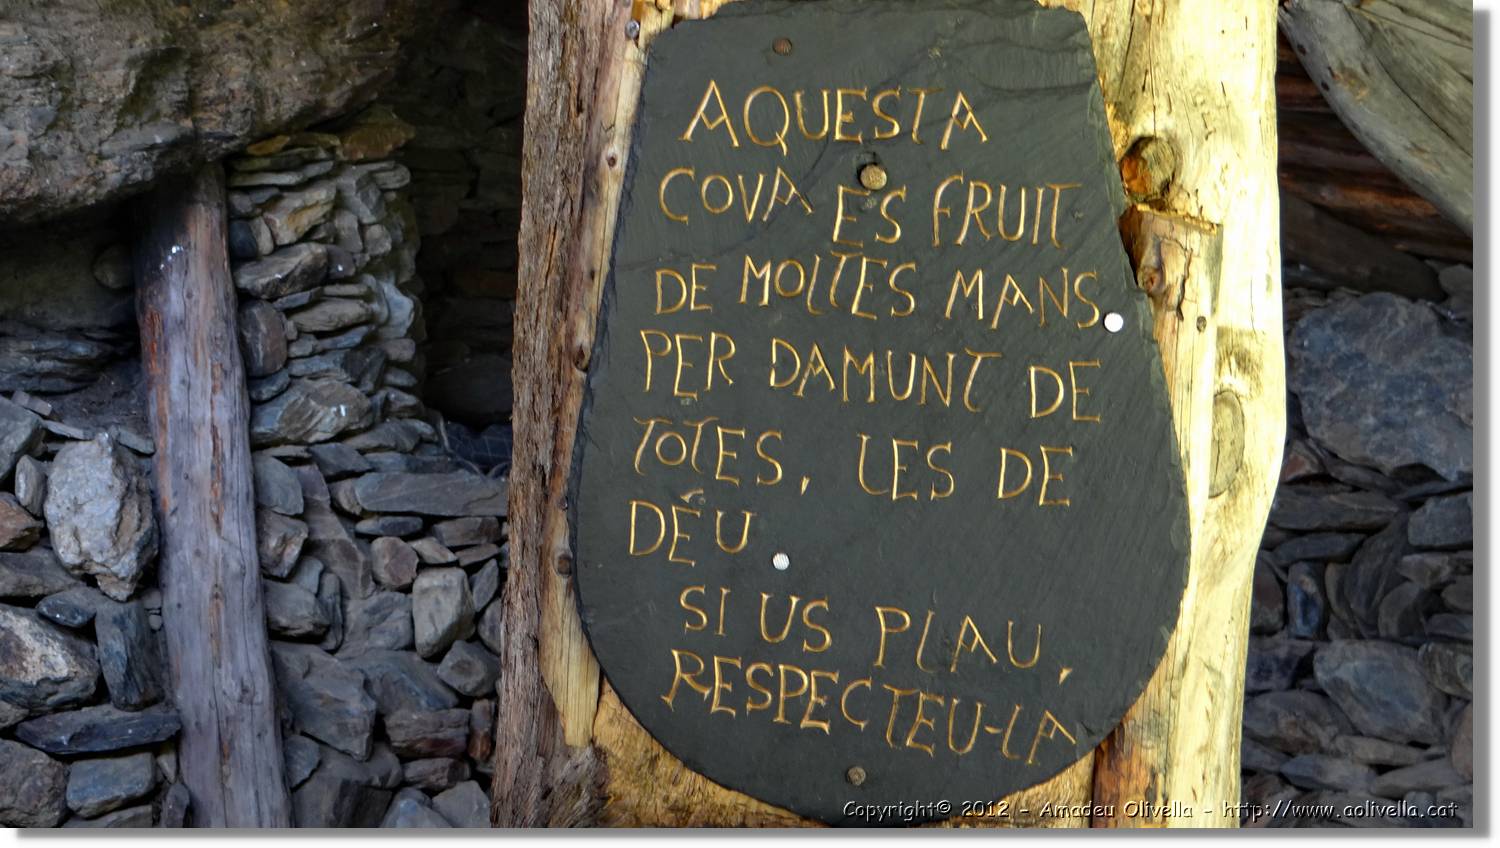 AQUESTA
COVA ES FRUIT
DE MOLTES MANS.
PER DAMUNT DE
TOTES, LES DE
DÉU.
SI US PLAU,
RESPECTEU-LA
Copyright© 2012 - Amadeu Olivella - http://www.aolivella.cat